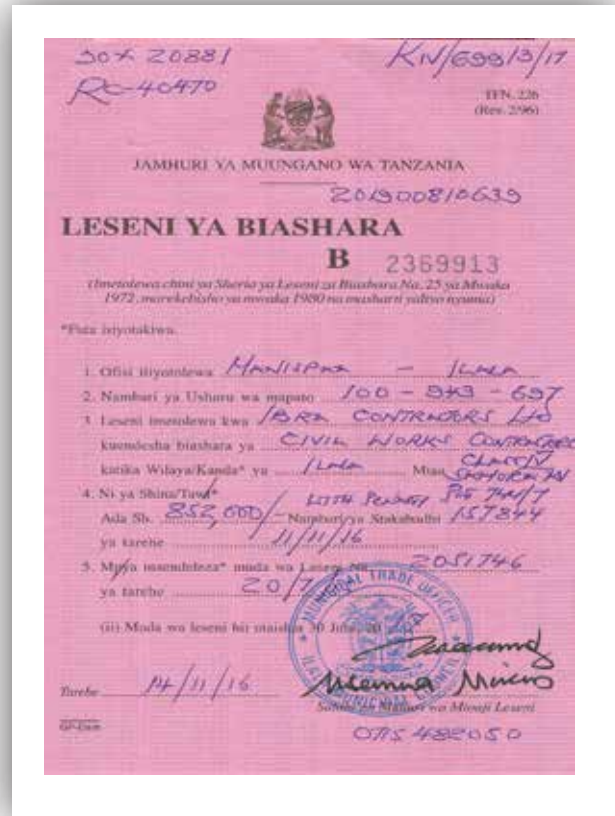 Box 20881 KIV/699/3/17
RC-40470 TFN. 226
(Rev. 2/96)
JAMHURI YA MUUNGANO WA TANZANIA
201900810639
LESENI YA BIASHARA
B 2369913
(Imetolewa chini ya Sheria ya Leseni za Biashara Na. 25 ya Mwaka
1972, marekebisho ya mwaka 1980 na masharti yaliyo nyuma)
*Futa isiyotakiwa.
1. Ofisi iliyotolewa MANISPAA - ILALA
2. Nambari ya Ushuru wa mapato 100-949-697
3. Leseni imetolewa kwa IBRA CONTRACTORS Ltd
kuendesha biashara ya CIVIL WORKS CONTRACTORS
CLASS IV
katika Wilaya/Kanda* ya ILALA Mtaa SAMORA AV
4. Ni ya Shina/Tawi* WITH PENALTY
Ada Sh. 852,000/- Nambari ya Stakabadhi 157844
ya tarehe 11/11/16
5. Mpya/maendelezo* muda wa Leseni Na. 2051746
ya tarehe 20/7/
(ii) Muda wa leseni hii utaisha 30 Juni, 20
MUNICIPAL TRADE OFFICER
Tarehe 14/11/16
Sahihi na Muhuri wa Mtoaji Leseni
0715 482050